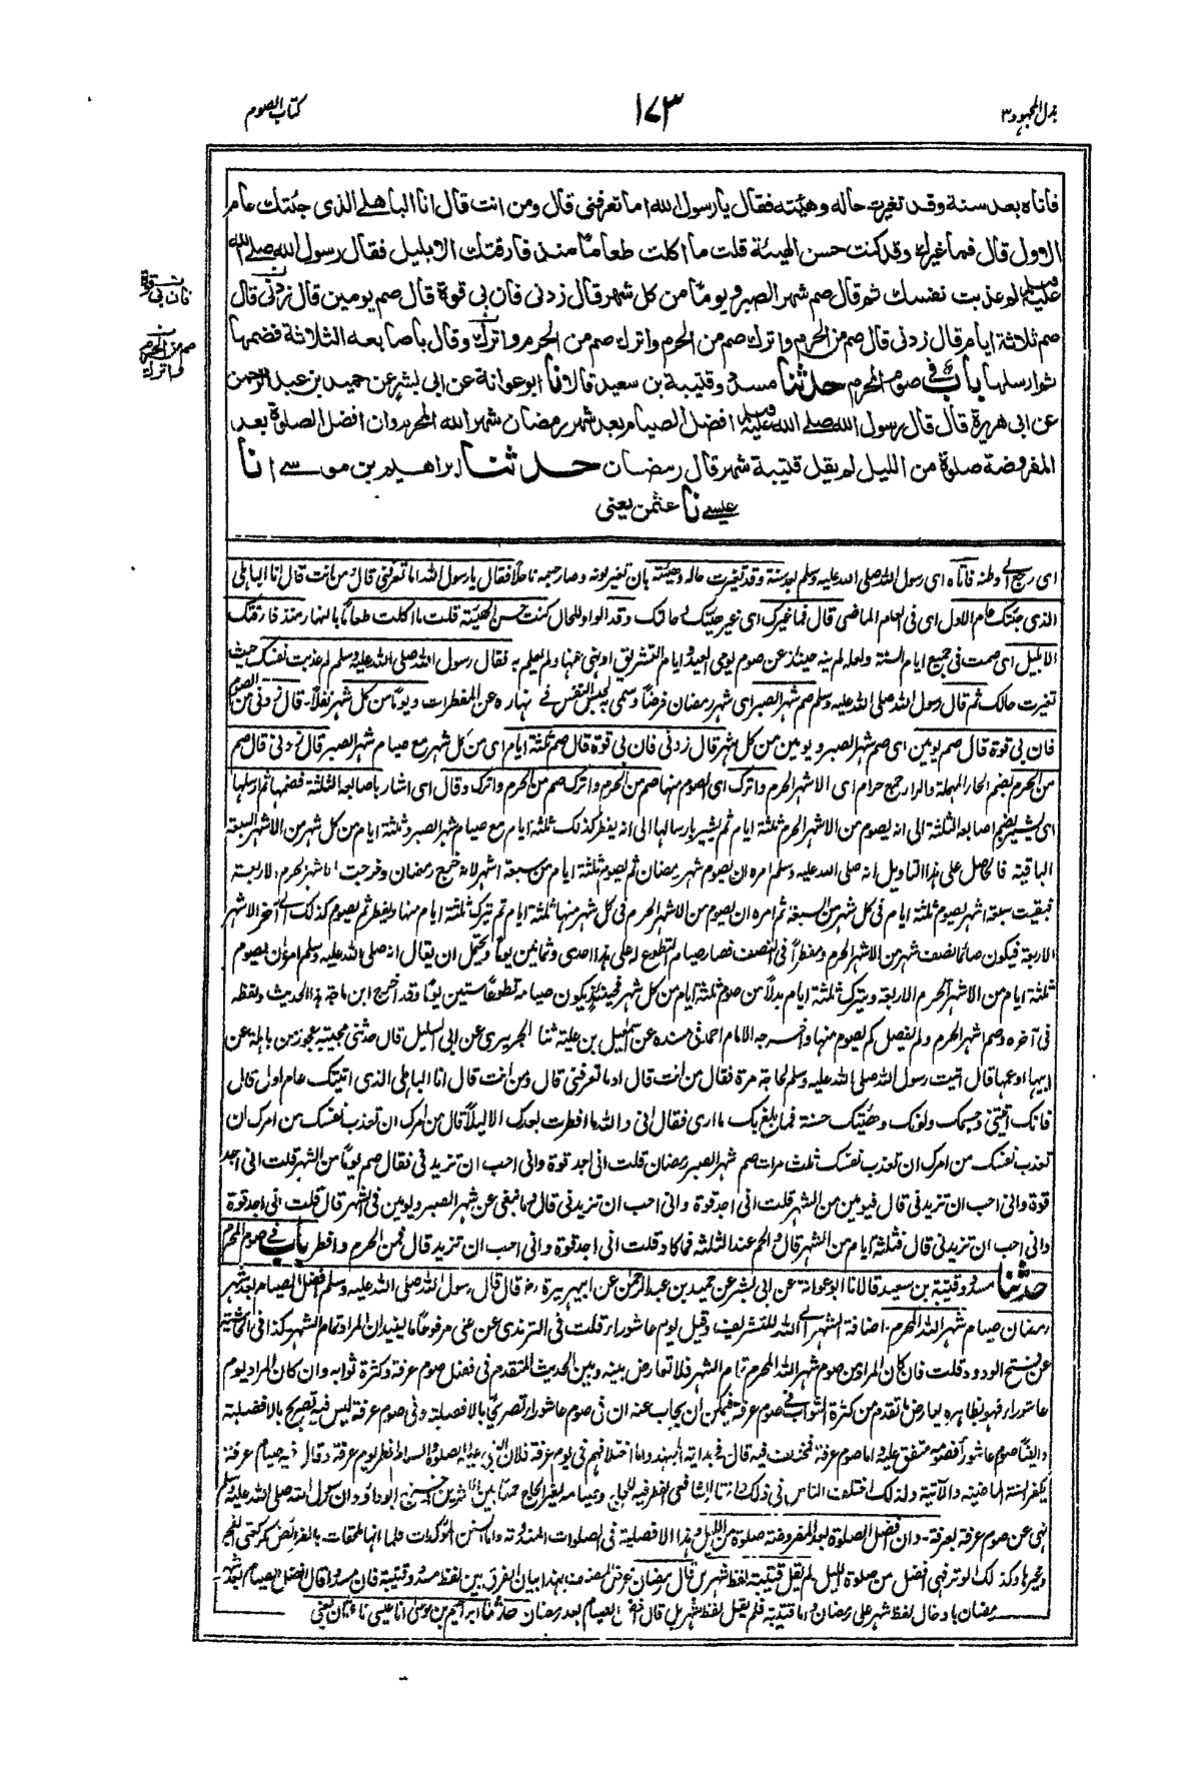 بذل المجہود ٣
١٧٣
كتاب الصوم
فاتاه بعد سنة وقد تغيرت حاله وهيئته فقال يا رسول الله اما تعرفنى قال ومن انت قال انا الباهلى الذى جئتك عام
الاول قال فما غيرك وقد كنت حسن الهيئة قلت ما اكلت طعاما منذ فارقتك الا بليل فقال رسول الله صلى الله
عليه وسلم لم عذبت نفسك ثم قال صم شهر الصبر ويوما من كل شهر قال زدنى فان بى قوة قال صم يومين قال زدنى قال
صم ثلاثة ايام قال زدنى قال صم من الحرم واترك صم من الحرم واترك صم من الحرم واترك وقال باصابعه الثلاثة فضمها
ثم ارسلها باب فى صوم المحرم حدثنا مسدد وقتيبة بن سعيد قالا نا ابو عوانة عن ابى بشر عن حميد بن عبد الرحمن
عن ابى هريرة قال قال رسول الله صلى الله عليه وسلم افضل الصيام بعد شهر رمضان شهر الله المحرم وان افضل الصلوة بعد
المفروضة صلوة من الليل لم يقل قتيبة شهر قال رمضان حدثنا ابراهيم بن موسى انا
عيسى نا عثمن يعنى
فان بى قوة
صم من الحرم
واترك
اى رجع الى وطنه فاتاه اى رسول الله صلى الله عليه وسلم بعد سنة وقد تغيرت حاله وهيئته بان تغير لونه وصار جسمه ناحلا فقال يا رسول الله اما تعرفنى قال ومن انت قال انا الباہلى
الذى جئتك عام الاول اى فى العام الماضى قال فما غيرك اى غير هيئتك حالتك وقد الواو للحال كنت حسن الهيئة قلت ما اكلت طعاما بالنهار منذ فارقتك
الا بليل اى صمت فى جميع ايام السنة ولعله لم ينه حينئذ عن صوم يومى العيد وايام التشريق او نهى عنها ولم يعلم به فقال رسول الله صلى الله عليه وسلم لم عذبت نفسك حيث
تغيرت حالك ثم قال رسول الله صلى الله عليه وسلم صم شهر الصبر اى شهر رمضان فرضا وسمى به لحبس النفس فى نهاره عن المفطرات ويوما من كل شهر نفلا قال زدنى من الصوم
فان بى قوة قال صم يومين اى صم شهر الصبر ويومين من كل شهر قال زدنى فان بى قوة قال صم ثلثة ايام اى من كل شهر مع صيام شهر الصبر قال زدنى قال صم
من الحرم بضم الحاء المهملة والراء جمع حرام اى الاشهر الحرم واترك اى الصوم منها صم من الحرم واترك صم من الحرم واترك وقال اى اشار باصابعه الثلثة فضمها ثم ارسلها
اى يشير بضم اصابعه الثلثة الى انه يصوم من الاشهر الحرم ثلثة ايام ثم يشير بارسالها الى انه يفطر كذلك ثلثة ايام مع صيام شهر الصبر وثلثة ايام من كل شهر من الاشهر السبعة
الباقية فالحاصل على هذا التاويل انه صلى الله عليه وسلم امره ان يصوم شهر رمضان ثم يصوم ثلثة ايام من سبعة اشهر لانه خرج رمضان وخرجت الاشهر الحرم الاربعة
فبقيت سبعة اشهر يصوم ثلثة ايام فى كل شهر من السبعة ثم امره ان يصوم من الاشهر الحرم فى كل شهر منها ثلثة ايام ثم يترك ثلثة ايام منها ويفطر ثم يصوم كذلك الى آخر الاشهر
الاربعة فيكون صائما نصف شهر من الاشهر الحرم ومفطرا فى النصف فصار صيام التطوع له على هذا احدى وثمانين يوما ويحتمل ان يقال انه صلى الله عليه وسلم امره ان يصوم
ثلثة ايام من الاشهر الحرم الاربعة ويترك ثلثة ايام بدلا من صوم ثلثة ايام من كل شهر فحينئذ يكون صيامه تطوعا ستين يوما وقد اخرج ابن ماجة هذا الحديث ولفظه
فى آخره وصم اشهر الحرم ولم يفصل كم يصوم منها واخرجه الامام احمد فى مسنده عن اسمعيل بن علية ثنا الجريرى عن ابى السليل قال حدثتنى مجيبة عجوز من باهلة عن
ابيها او عمها قال اتيت رسول الله صلى الله عليه وسلم لحاجة مرة فقال من انت قال اوما تعرفنى قال ومن انت قال انا الباهلى الذى اتيتك عام اول قال
فانك اتيتنى وجسمك ولونك وهيئتك حسنة فما بلغ بك ما ارى فقال انى والله ما افطرت بعدك الا ليلا قال من امرك ان تعذب نفسك من امرك ان
تعذب نفسك من امرك ان تعذب نفسك ثلث مرات صم شهر الصبر رمضان قلت انى اجد قوة وانى احب ان تزيدنى فقال صم يوما من الشهر قلت انى اجد
قوة وانى احب ان تزيدنى قال فيومين من الشهر قلت انى اجد قوة وانى احب ان تزيدنى قال وما تبغى عن شهر الصبر ويومين فى الشهر قال قلت انى اجد قوة
وانى احب ان تزيدنى قال فثلثة ايام من الشهر قال والحم عند الثلثة فما كاد قلت انى اجد قوة وانى احب ان تزيدنى قال فمن الحرم وافطر باب فى صوم المحرم
حدثنا مسدد وقتيبة بن سعيد قالا نا ابو عوانة عن ابى بشر عن حميد بن عبد الرحمن عن ابى هريرة رض قال قال رسول الله صلى الله عليه وسلم افضل الصيام بعد شهر
رمضان صيام شهر الله المحرم اضافة الشهر الى الله للتشريف وقيل يوم عاشوراء قلت فى الترمذى عن على مرفوعا ما يفيد ان المراد تمام الشهر كذا فى الحاشية
عن فتح الودود قلت فان كان المراد من صوم شهر الله المحرم تمام الشهر فلا تعارض بينه وبين الحديث المتقدم فى فضل صوم عرفة وكثرة ثوابه وان كان المراد يوم
عاشوراء فهو بظاهره يعارض ما تقدم من كثرة الثواب فى صوم عرفة فيمكن ان يجاب عنه ان فى صوم عاشوراء تصريحا بالافضلية وفى صوم عرفة ليس فيه تصريح بالافضلية
وايضا صوم عاشوراء متفق عليه واما صوم عرفة فمختلف فيه قال فى بداية المجتهد واما اختلافهم فى يوم عرفة فلان النبى عليه الصلوة والسلام افطر يوم عرفة وقال فيه صيام عرفة
يكفر السنة الماضية والآتية ولذلك اختلف الناس فى ذلك واختار الشافعى الفطر فيه للحاج وصيامه لغير الحاج جمعا بين الاثرين وخرج ابو داؤد ان رسول الله صلى الله عليه وسلم
نهى عن صوم عرفة بعرفة وان افضل الصلوة بعد المفروضة صلوة من الليل وهذا الافضلية فى الصلوات المندوبة واما السنن المؤكدات فلما انها ملحقات بالفرائض كركعتى الفجر
وغيرها وكذلك الوتر فهى افضل من صلوة الليل لم يقل قتيبة لفظ شهر بل قال رمضان غرض المصنف بهذا بيان الفرق بين لفظ مسدد وقتيبة فان مسددا قال افضل الصيام بعد شهر
رمضان بادخال لفظ شهر على رمضان واما قتيبة فلم يقل لفظ شهر بل قال افضل الصيام بعد رمضان حدثنا ابراهيم بن موسى انا عيسى نا عثمان يعنى